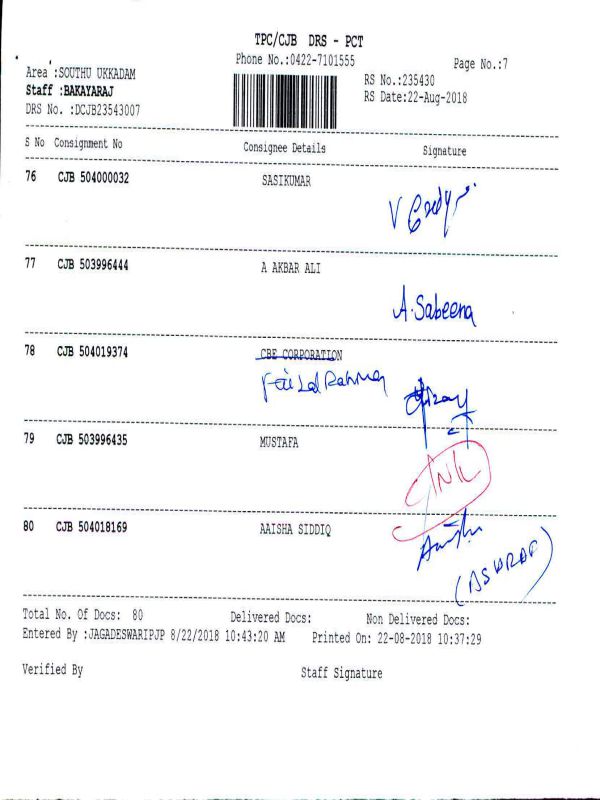 TPC/CJB DRS - PCT
Phone No.:0422-7101555
Page No.:7
Area :SOUTHU UKKADAM
RS No.:235430
Staff :BAKAYARAJ
RS Date:22-Aug-2018
DRS No. :DCJB23543007
S No Consignment No Consignee Details Signature
76 CJB 504000032 SASIKUMAR
77 CJB 503996444 A AKBAR ALI
A. Sabeena
78 CJB 504019374 CBE CORPORATION
Faizal Rahman
79 CJB 503996435 MUSTAFA
80 CJB 504018169 AAISHA SIDDIQ
Total No. Of Docs: 80 Delivered Docs: Non Delivered Docs:
Entered By :JAGADESWARIPJP 8/22/2018 10:43:20 AM Printed On: 22-08-2018 10:37:29
Verified By Staff Signature